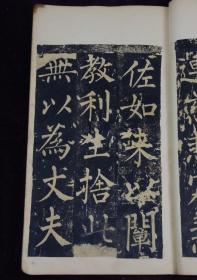 佐如來以闡
教利生捨此
無以為丈夫